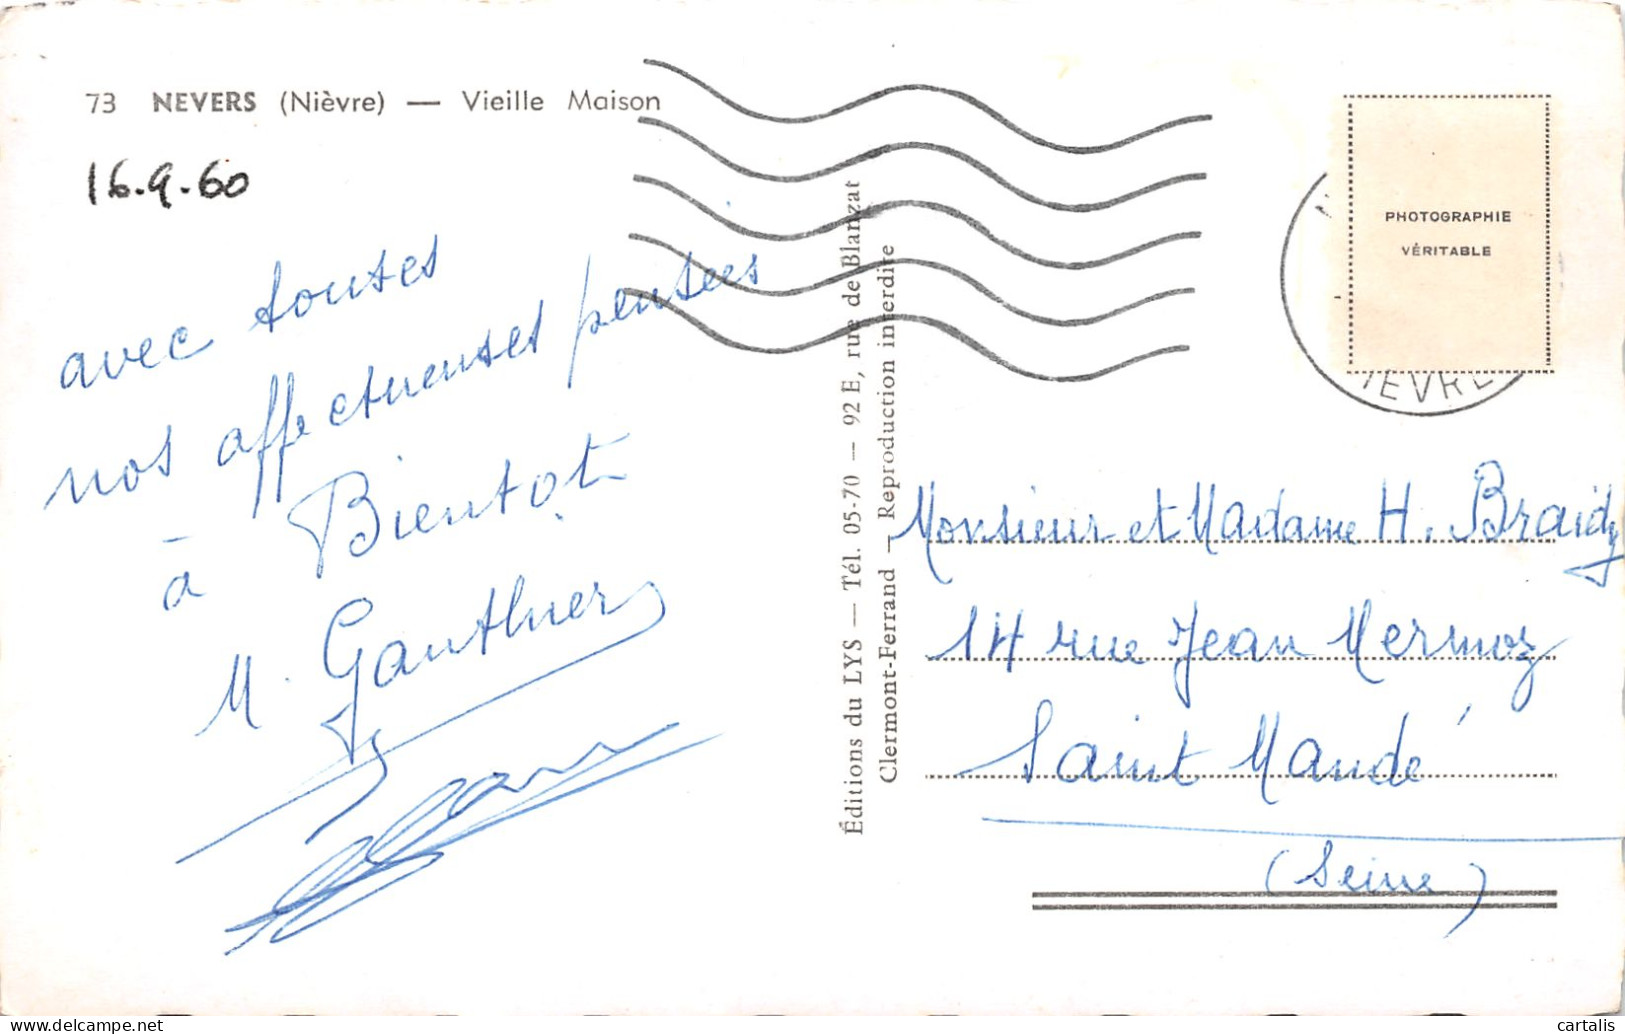 73 NEVERS (Nièvre) — Vieille Maison
16.9.60
avec toutes
nos affectueuses pensées
à Bientot
M. Gauthier
Éditions du LYS — Tél. 05-70 — 92 E, rue de Blanzat
Clermont-Ferrand — Reproduction interdite
PHOTOGRAPHIE
VÉRITABLE
IEVRE
Monsieur et Madame H. Braidy
14 rue Jean Mermoz
Saint Mandé
(Seine)
cartalis